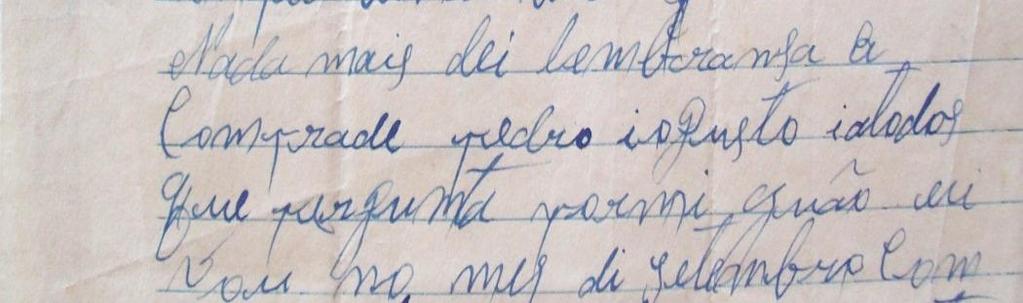 Nada mais dei lembransa a
Comprade pedro iogusto iatodos
Que pergunta pormi quão eu
Vou no mes di setembro Com